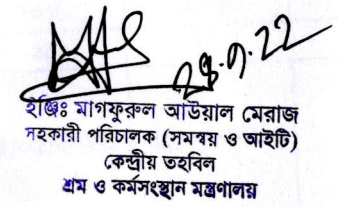 ২৪.৭.২২
ইঞ্জিঃ মাগফুরুল আউয়াল মেরাজ
সহকারী পরিচালক (সমন্বয় ও আইটি)
কেন্দ্রীয় তহবিল
শ্রম ও কর্মসংস্থান মন্ত্রণালয়